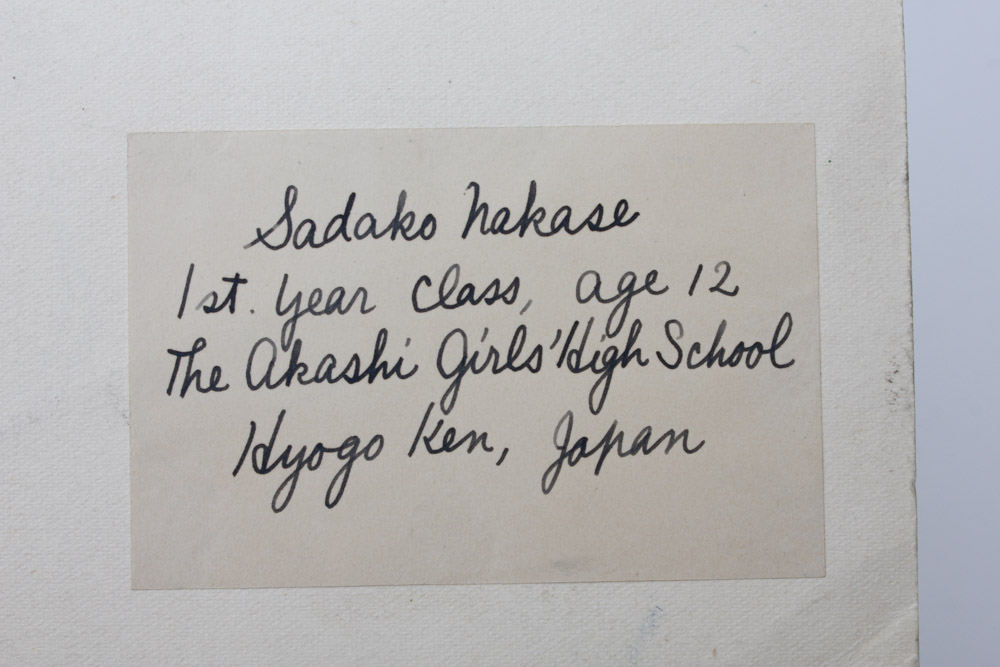 Sadako Nakase
1st. year class, age 12
The Akashi Girls' High School
Hyogo Ken, Japan